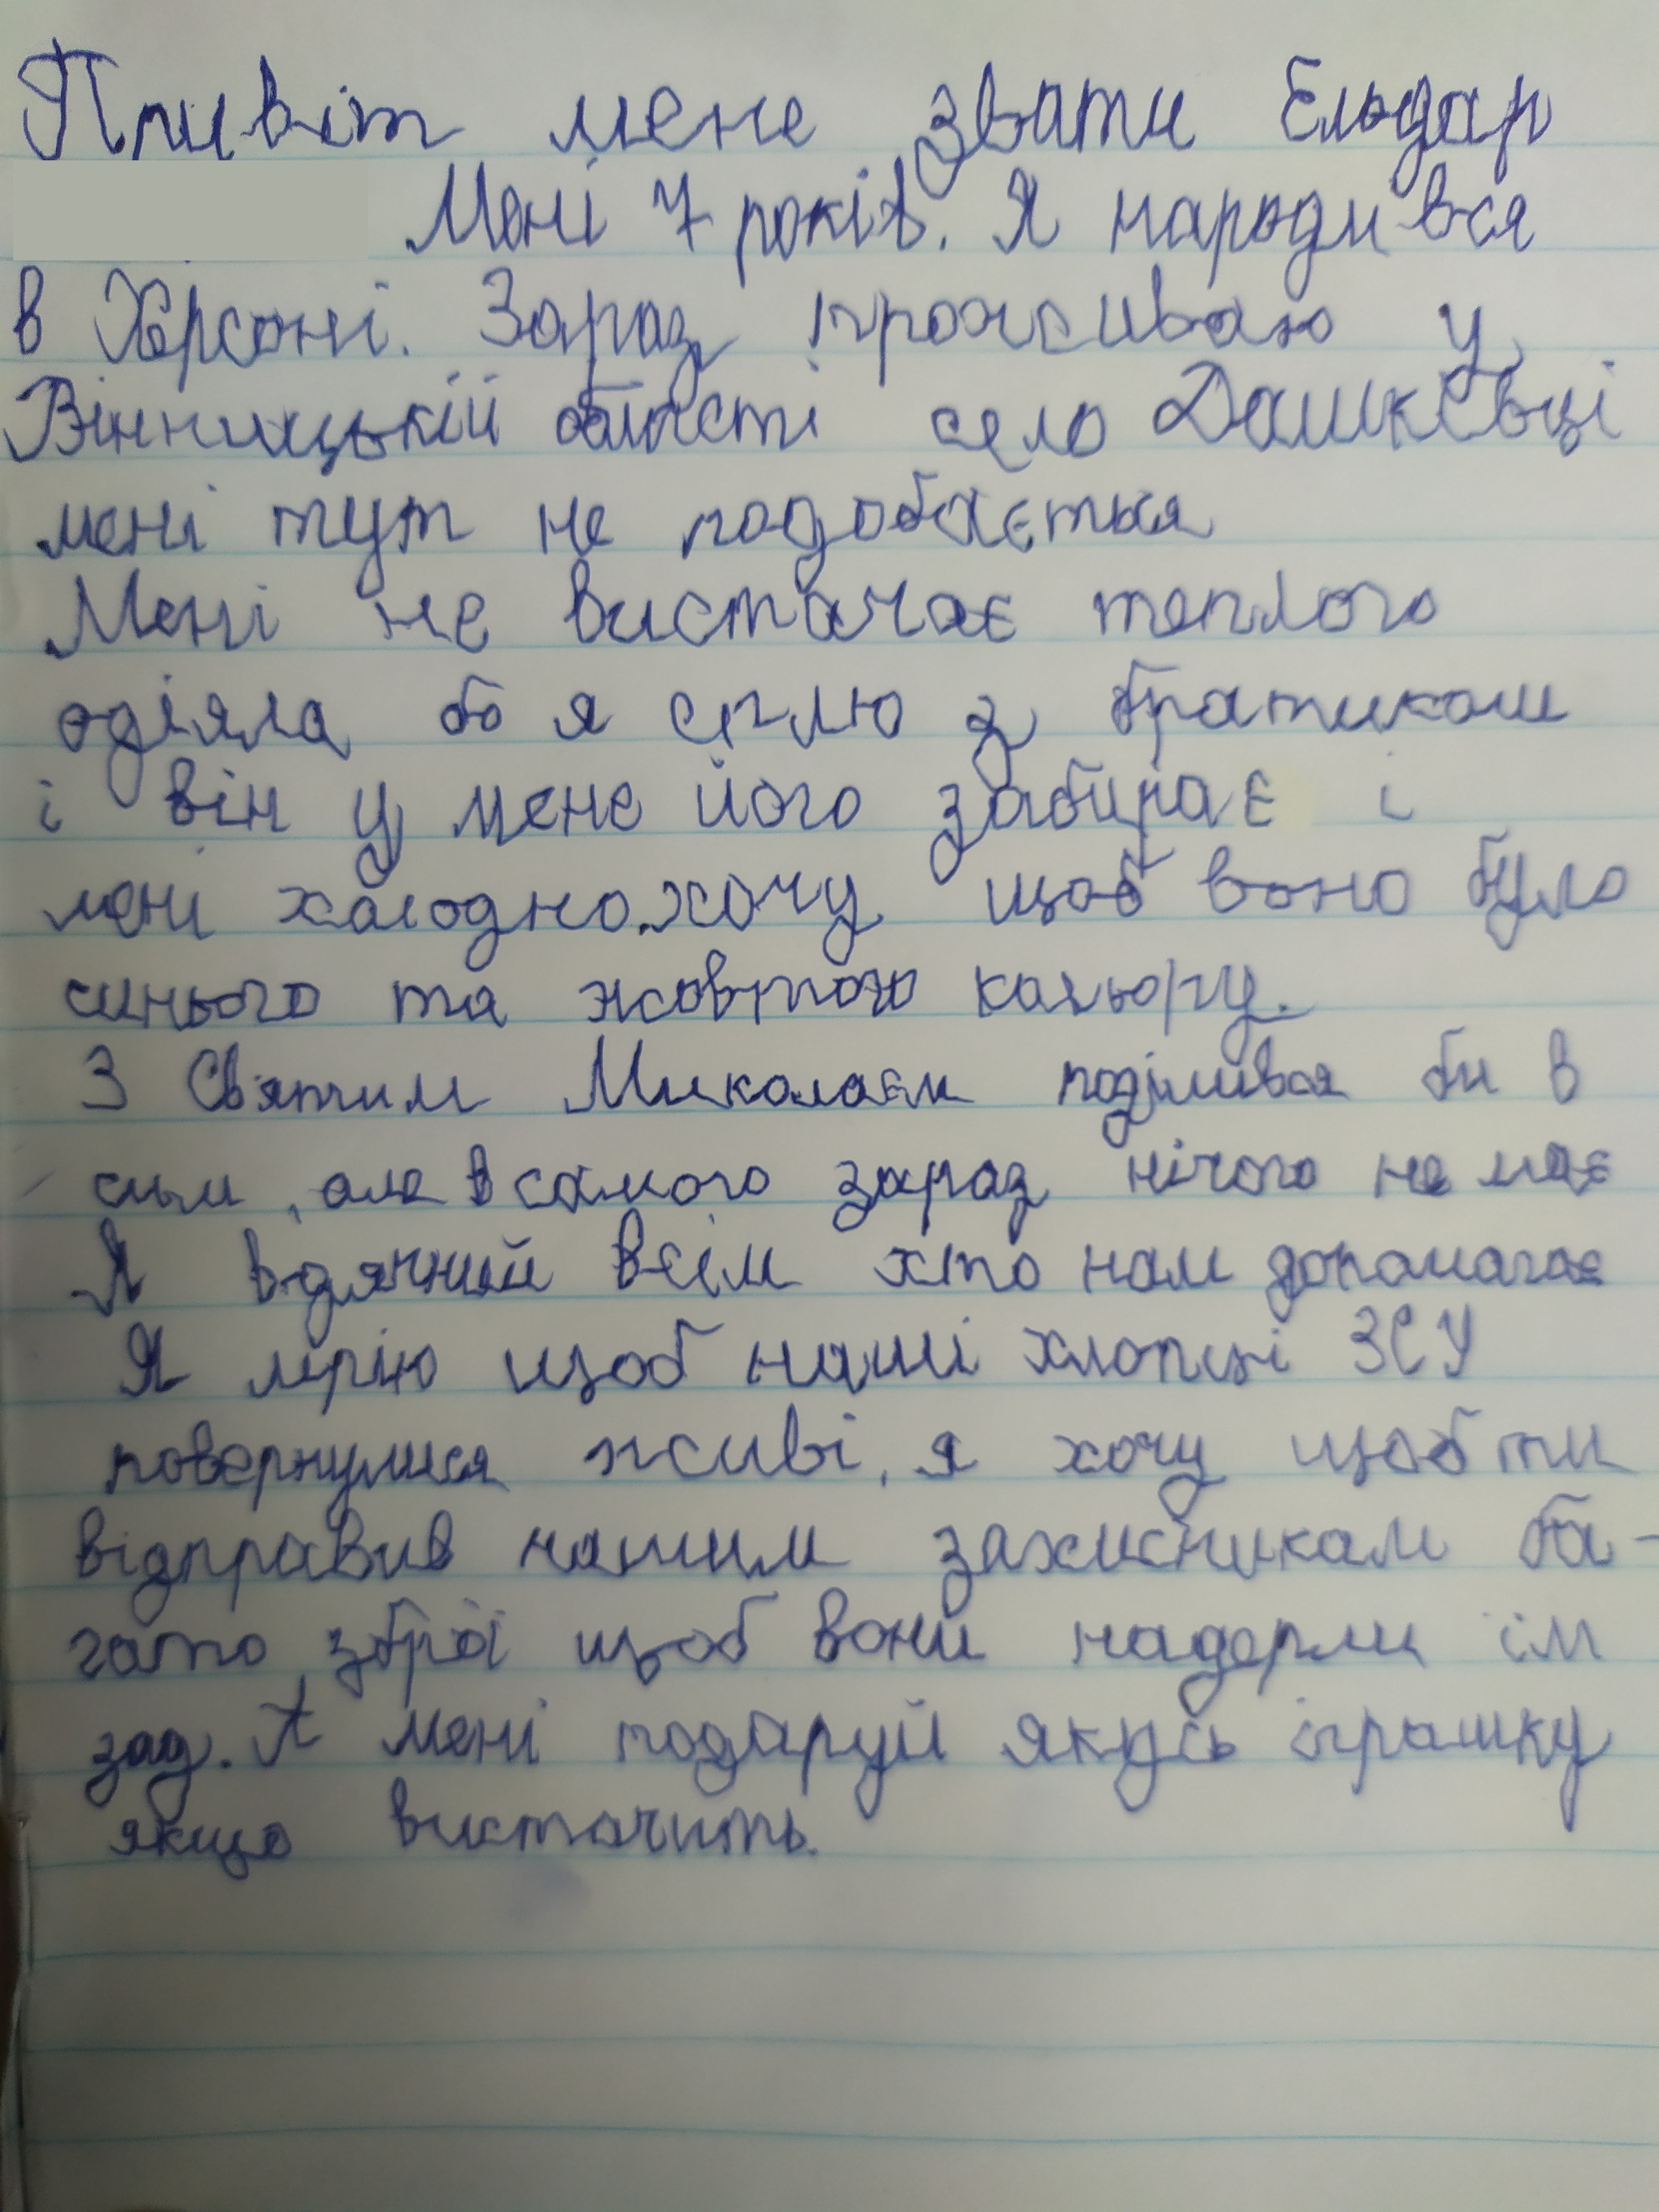 Привіт мене звати Ельдар
Мені 7 років. Я народився
в Херсоні. Зараз проживаю у
Вінницькій області село Дашківці
мені тут не подобається
Мені не вистачає теплого
одіяла бо я сплю з братиком
і він у мене його забирає і
мені холодно. хочу щоб воно було
синього та жовтого кольору.
З Святим Миколаєм поділився би в
сим, але в самого зараз нічого не має
Я вдячний всім хто нам допомагає
Я мрію щоб наші хлопці ЗСУ
повернулися живі, я хочу щоб ти
відправив нашим захисникам ба-
гато зброї щоб вони надерли їм
зад. А мені подаруй якусь іграшку
якщо вистачить.